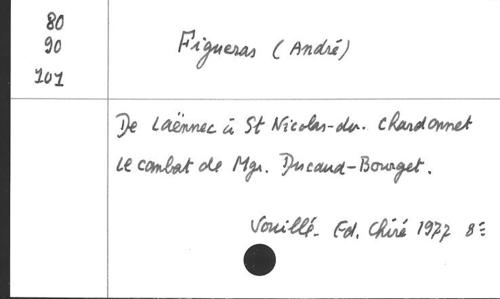 80
90
101
Figueras (André)
De Laënnec à St Nicolas-du. Chardonnet
Le combat de Mgr. Ducaud-Bourget.
Vouillé. Ed. Chiré 1977 8=